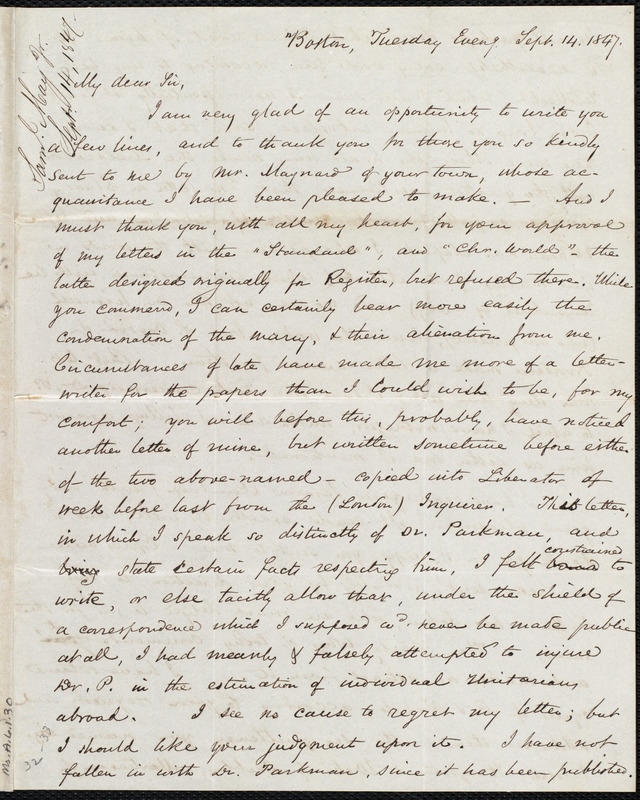 Boston, Tuesday Eveng. Sept. 14. 1847.
Saml. May Jr.
Sept. 14, 1847.
My dear Sir,
I am very glad of an opportunity to write you
a few lines, and to thank you for those you so kindly
sent to me by Mr. Maynard of your town, whose ac-
quaintance I have been pleased to make. — And I
must thank you, with all my heart, for your approval
of my letters in the "Standard", and "Chr. World" - the
latter designed originally for Register, but refused there. While
you commend, I can certainly bear more easily the
condemnation of the many, & their alienation from me.
Circumstances of late have made me more of a letter-
writer for the papers than I could wish to be, for my
comfort; you will before this, probably, have noticed
another letter of mine, but written sometime before either
of the two above-named - copied into Liberator of
week before last from the (London) Inquirer. This letter,
in which I speak so distinctly of Dr. Parkman, and
state certain facts respecting him, I felt constrained to
write, or else tacitly allow that, under the shield of
a correspondence which I supposed wd. never be made public
at all, I had meanly & falsely attempted to injure
Dr. P. in the estimation of individual Unitarians
abroad. I see no cause to regret my letter; but
I should like your judgment upon it. I have not
fallen in with Dr. Parkman, since it has been published.
Ms.A.6.1.30
32-33